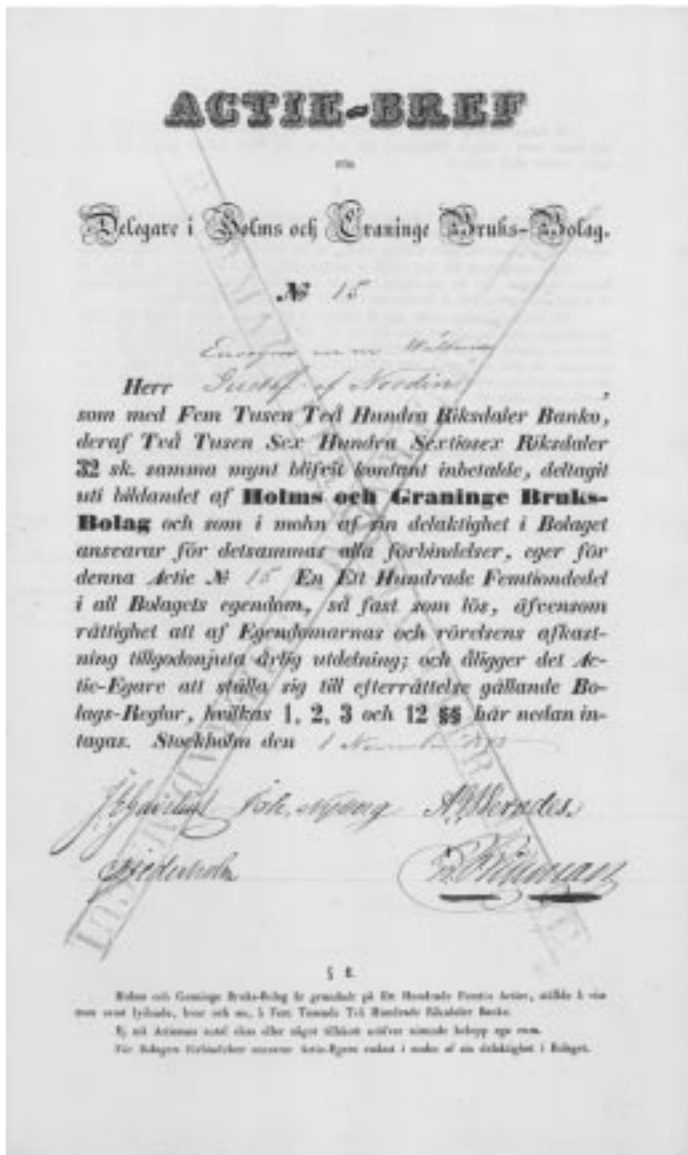 ACTIE-BREF
för
Delegare i Holms och Graninge Bruks-Bolag.
№ 15
Herr Gustaf af Nordin,
som med Fem Tusen Två Hundra Riksdaler Banko,
deraf Två Tusen Sex Hundra Sextiosex Riksdaler
32 sk. samma mynt blifvit kontant inbetalde, deltagit
uti bildandet af Holms och Graninge Bruks-
Bolag och som i mohn af sin delaktighet i Bolaget
ansvarar för detsammas alla förbindelser, eger för
denna Actie № 15 En Ett Hundrade Femtiondedel
i all Bolagets egendom, så fast som lös, äfvensom
rättighet att af Egendomarnas och rörelsens afkast-
ning tillgodonjuta årlig utdelning; och åligger det Ac-
tie-Egare att ställa sig till efterrättelse gällande Bo-
lags-Reglor, hvilkas 1, 2, 3 och 12 §§ här nedan in-
tagas. Stockholm den 1 November
Joh. Nyberg
Holms och Graninge Bruks-Bolag är grundadt på Ett Hundrade Femtio Actier, ställde å viss
man samt lydande, hvar och en, å Fem Tusende Två Hundrade Riksdaler Banko.
Ej må Actiernas antal ökas eller något tillskott utöfver nämnde belopp ega rum.
För Bolagets förbindelser ansvarar Actie-Egare endast i mohn af sin delaktighet i Bolaget.